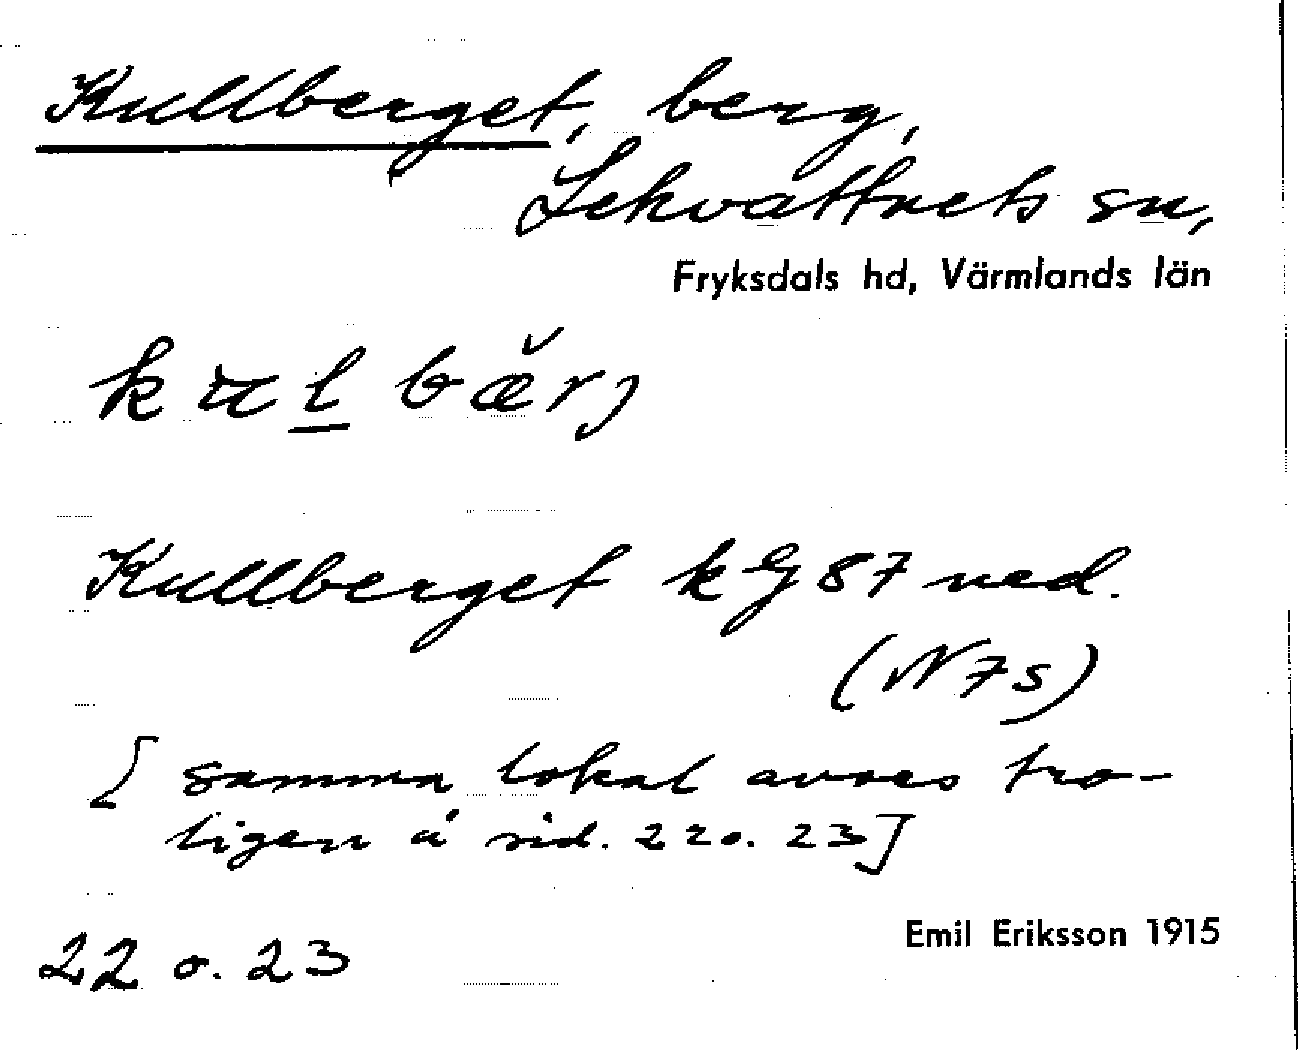 Kullberget, berg,
Lekvattnets sn,
Fryksdals hd, Värmlands län
Kullberget k G 87 ned.
(N 7 s)
[samma lokal avses tro-
ligen å sid. 22 o. 23]
Emil Eriksson 1915
22 o. 23